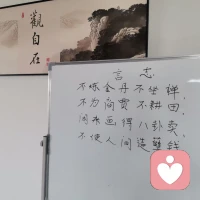 觀自在
言志
不炼金丹不坐禅，
不为商贾不耕田。
闲来画得八卦卖，
不使人间造孽钱